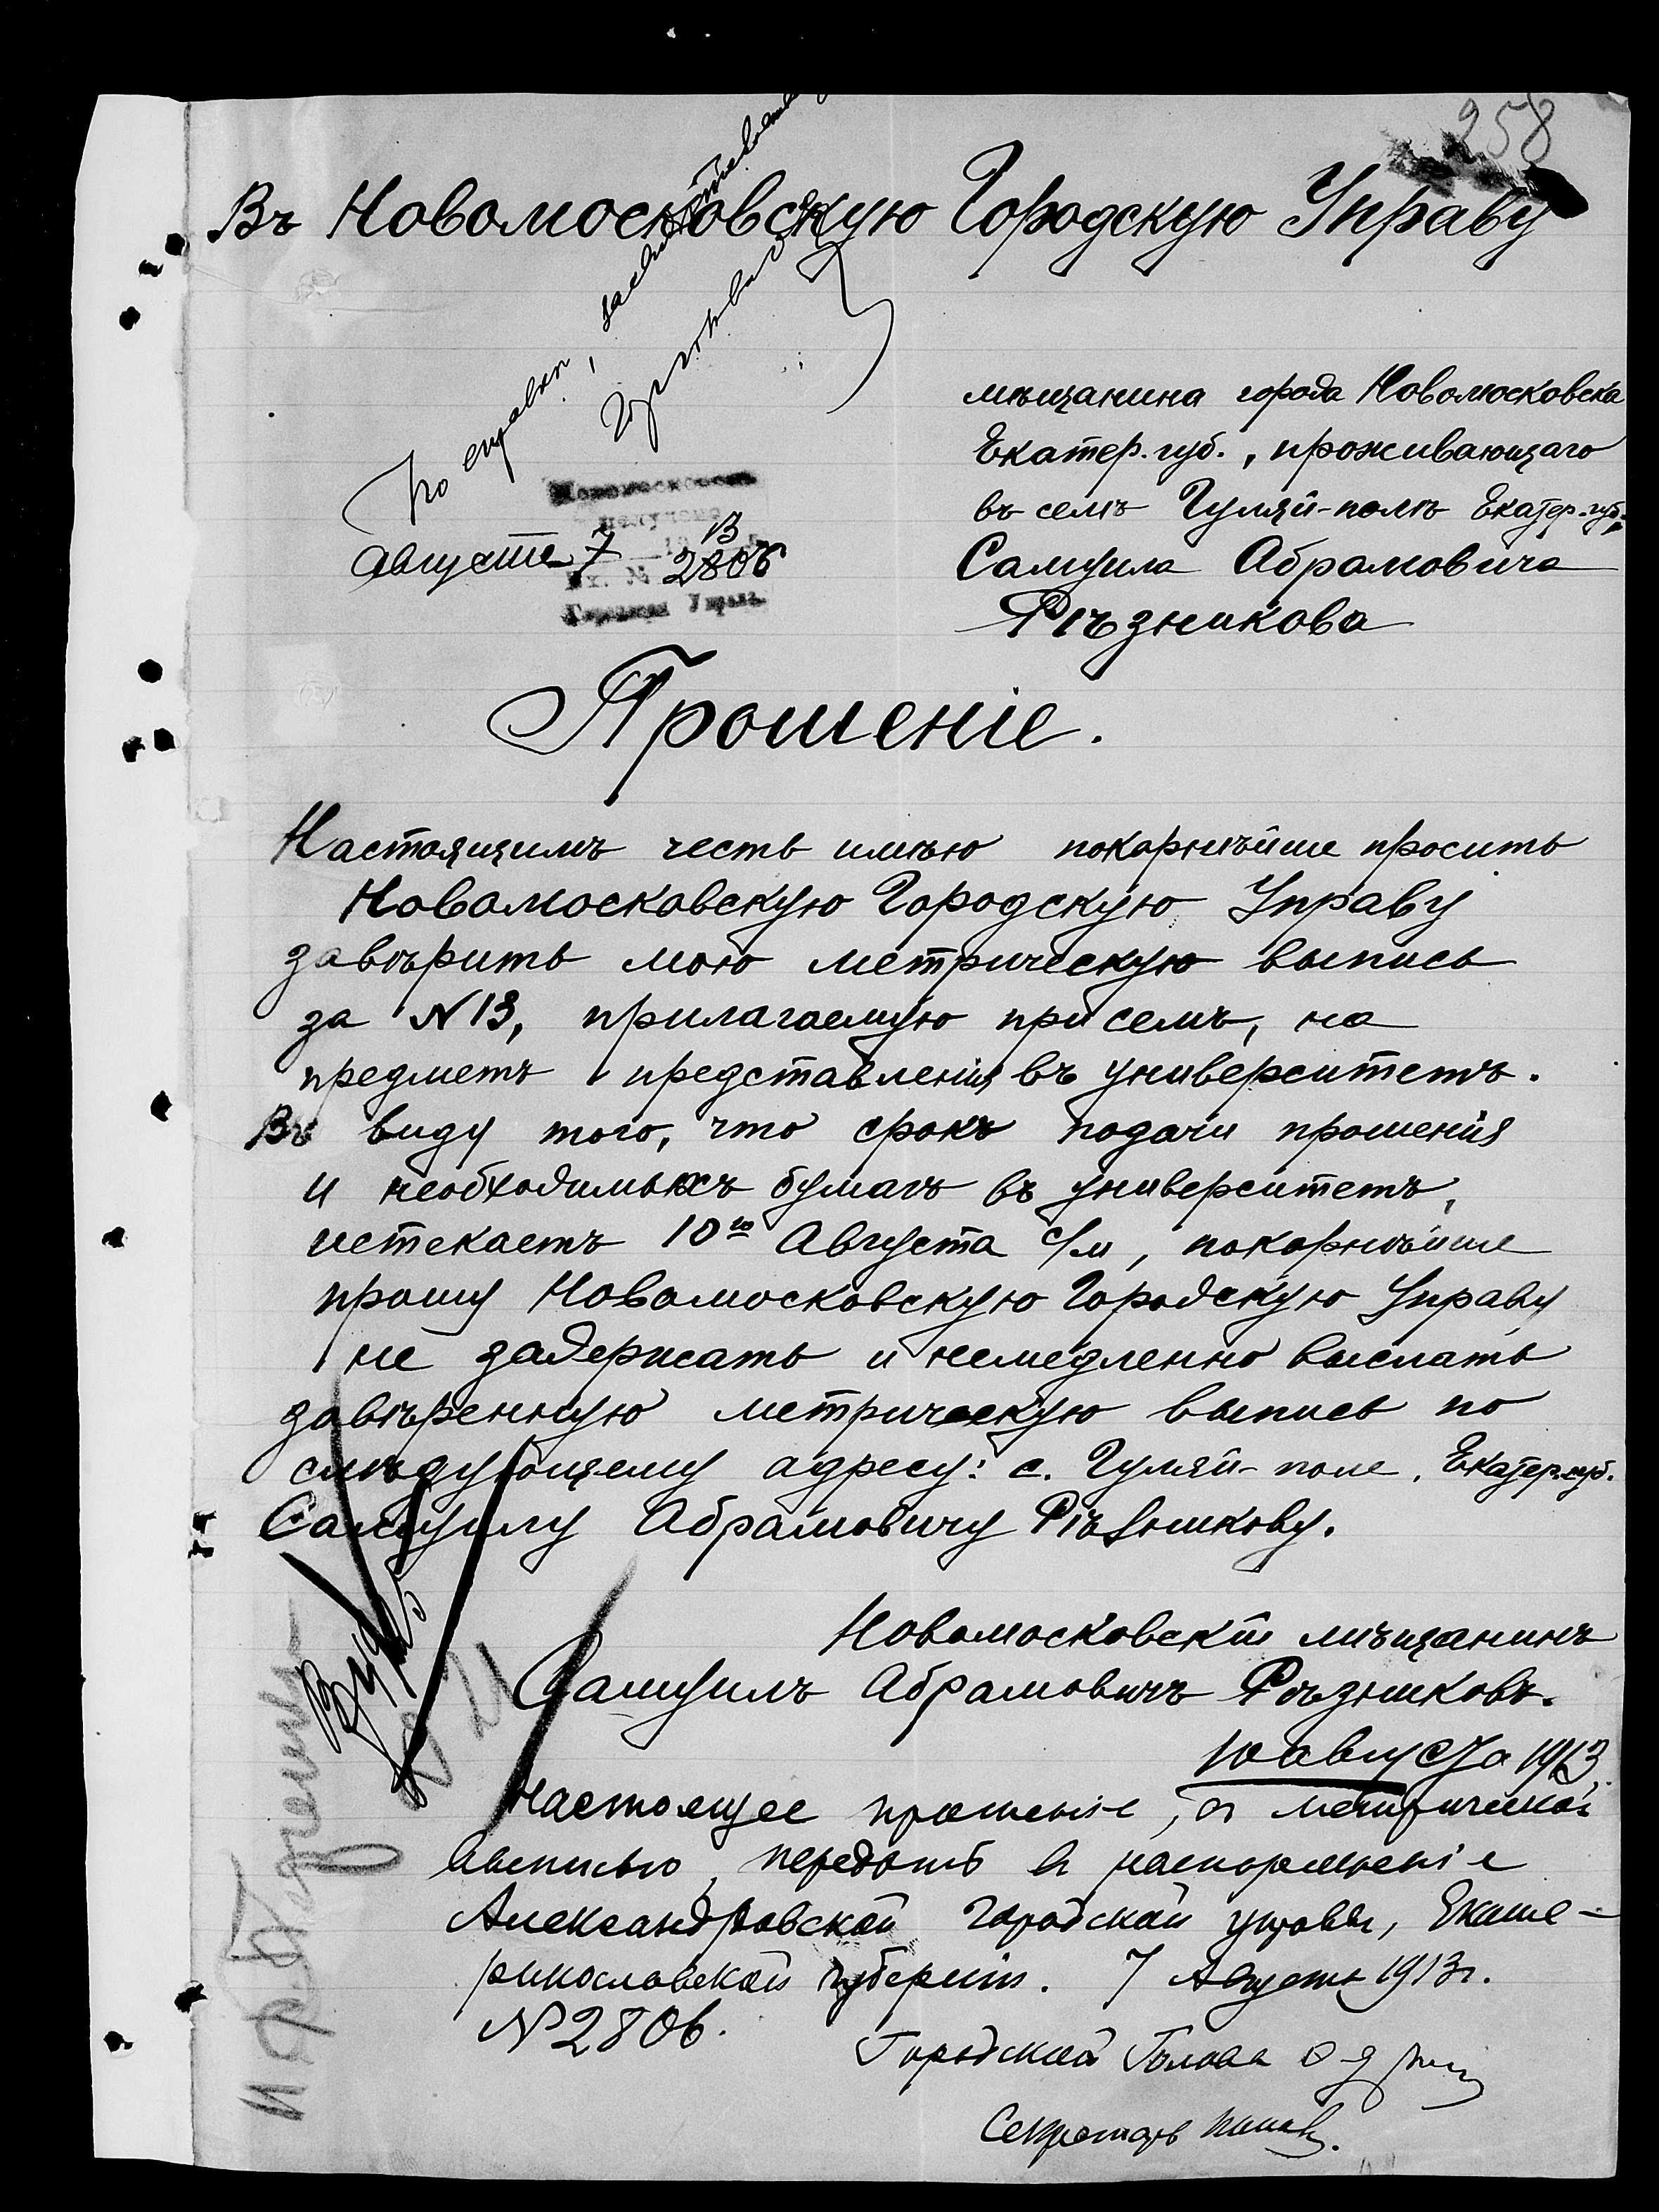 258
Въ Новомосковскую Городскую Управу
По справкѣ,
мѣщанина города Новомосковска
Екатер. губ., проживающаго
въ селѣ Гуляй-полѣ Екатер. губ.,
Самуила Абрамовича
Рѣзникова
Новомосковскъ
получено
Августа 7 13
Вх. № 2806
Городская Управа
Прошеніе.
Настоящимъ честь имѣю покорнѣйше просить
Новомосковскую Городскую Управу
завѣрить мою метрическую выпись
за №13, прилагаемую при семъ, на
предметъ представленія въ университетъ.
Въ виду того, что срокъ подачи прошенія
и необходимыхъ бумагъ въ университетъ,
истекаетъ 10го Августа с/м, покорнѣйше
прошу Новомосковскую Городскую Управу
не задержать и немедленно выслать
завѣренную метрическую выпись по
слѣдующему адресу: с. Гуляй-поле, Екатер. губ.
Самуилу Абрамовичу Рѣзникову.
Новомосковскій мѣщанинъ
Самуилъ Абрамовичъ Рѣзниковъ.
10 августа 1913
Настоящее прошеніе, съ метрической
выписью, передать въ распоряженіе
Александровской Городской управы, Екате-
ринославской губерніи. 7 Августа 1913г.
№2806.
Городской Голова
Секретарь